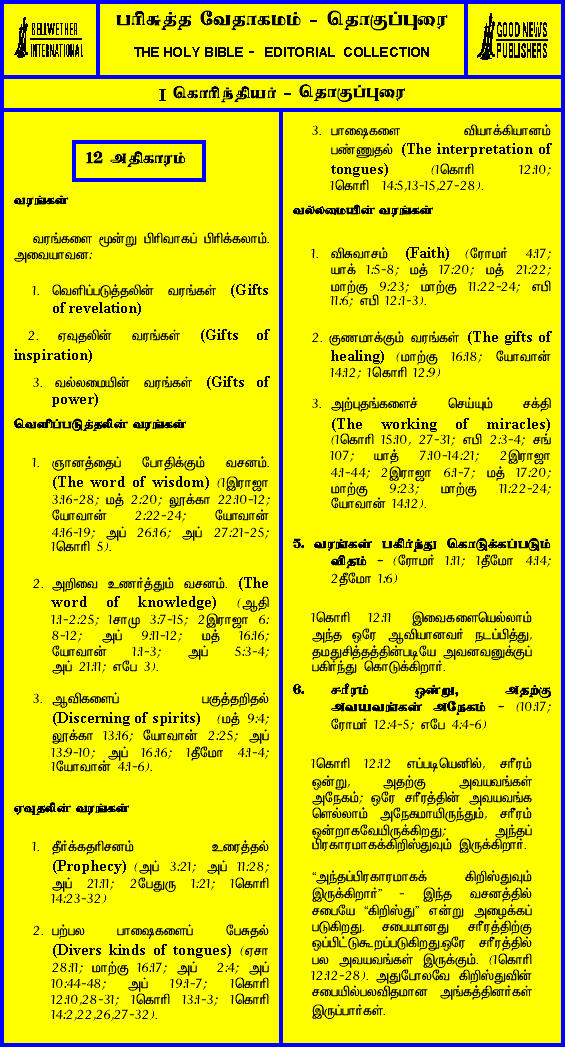 BELLWETHER
INTERNATIONAL
பரிசுத்த வேதாகமம் - தொகுப்புரை
THE HOLY BIBLE - EDITORIAL COLLECTION
GOOD NEWS
PUBLISHERS
I கொரிந்தியர் - தொகுப்புரை
12 அதிகாரம்
வரங்கள்
வரங்களை மூன்று பிரிவாகப் பிரிக்கலாம்.
அவையாவன:
1. வெளிப்படுத்தலின் வரங்கள் (Gifts
of revelation)
2. ஏவுதலின் வரங்கள் (Gifts of
inspiration)
3. வல்லமையின் வரங்கள் (Gifts of
power)
வெளிப்படுத்தலின் வரங்கள்
1. ஞானத்தைப் போதிக்கும் வசனம்.
(The word of wisdom) (1இராஜா
3:16-28; மத் 2:20; லூக்கா 22:10-12;
யோவான் 2:22-24; யோவான்
4:16-19; அப் 26:16; அப் 27:21-25;
1கொரி 5).
2. அறிவை உணர்த்தும் வசனம். (The
word of knowledge) (ஆதி
1:1-2:25; 1சாமு 3:7-15; 2இராஜா 6:
8-12; அப் 9:11-12; மத் 16:16;
யோவான் 1:1-3; அப் 5:3-4;
அப் 21:11; எபே 3).
3. ஆவிகளைப் பகுத்தறிதல்
(Discerning of spirits) (மத் 9:4;
லூக்கா 13:16; யோவான் 2:25; அப்
13:9-10; அப் 16:16; 1தீமோ 4:1-4;
1யோவான் 4:1-6).
ஏவுதலின் வரங்கள்
1. தீர்க்கதரிசனம் உரைத்தல்
(Prophecy) (அப் 3:21; அப் 11:28;
அப் 21:11; 2பேதுரு 1:21; 1கொரி
14:23-32)
2. பற்பல பாஷைகளைப் பேசுதல்
(Divers kinds of tongues) (ஏசா
28:11; மாற்கு 16:17; அப் 2:4; அப்
10:44-48; அப் 19:1-7; 1கொரி
12:10,28-31; 1கொரி 13:1-3; 1கொரி
14:2,22,26,27-32).
3. பாஷைகளை வியாக்கியானம்
பண்ணுதல் (The interpretation of
tongues) (1கொரி 12:10;
1கொரி 14:5,13-15,27-28).
வல்லமையின் வரங்கள்
1. விசுவாசம் (Faith) (ரோமர் 4:17;
யாக் 1:5-8; மத் 17:20; மத் 21:22;
மாற்கு 9:23; மாற்கு 11:22-24; எபி
11:6; எபி 12:1-3).
2. குணமாக்கும் வரங்கள் (The gifts of
healing) (மாற்கு 16:18; யோவான்
14:12; 1கொரி 12:9)
3. அற்புதங்களைச் செய்யும் சக்தி
(The working of miracles)
(1கொரி 15:10, 27-31; எபி 2:3-4; சங்
107; யாத் 7:10-14:21; 2இராஜா
4:1-44; 2இராஜா 6:1-7; மத் 17:20;
மாற்கு 9:23; மாற்கு 11:22-24;
யோவான் 14:12).
5. வரங்கள் பகிர்ந்து கொடுக்கப்படும்
விதம் - (ரோமர் 1:11; 1தீமோ 4:14;
2தீமோ 1:6)
1கொரி 12:11 இவைகளையெல்லாம்
அந்த ஒரே ஆவியானவர் நடப்பித்து,
தமதுசித்தத்தின்படியே அவனவனுக்குப்
பகிர்ந்து கொடுக்கிறார்.
6. சரீரம் ஒன்று, அதற்கு
அவயவங்கள் அநேகம் - (10:17;
ரோமர் 12:4-5; எபே 4:4-6)
1கொரி 12:12 எப்படியெனில், சரீரம்
ஒன்று, அதற்கு அவயவங்கள்
அநேகம்; ஒரே சரீரத்தின் அவயவங்க
ளெல்லாம் அநேகமாயிருந்தும், சரீரம்
ஒன்றாகவேயிருக்கிறது; அந்தப்
பிரகாரமாகக்கிறிஸ்துவும் இருக்கிறார்.
“அந்தப்பிரகாரமாகக் கிறிஸ்துவும்
இருக்கிறார்” - இந்த வசனத்தில்
சபையே “கிறிஸ்து” என்று அழைக்கப்
படுகிறது. சபையானது சரீரத்திற்கு
ஒப்பிட்டுகூறப்படுகிறது.ஒரே சரீரத்தில்
பல அவயவங்கள் இருக்கும். (1கொரி
12:12-28). அதுபோலவே கிறிஸ்துவின்
சபையில்பலவிதமான அங்கத்தினர்கள்
இருப்பார்கள்.